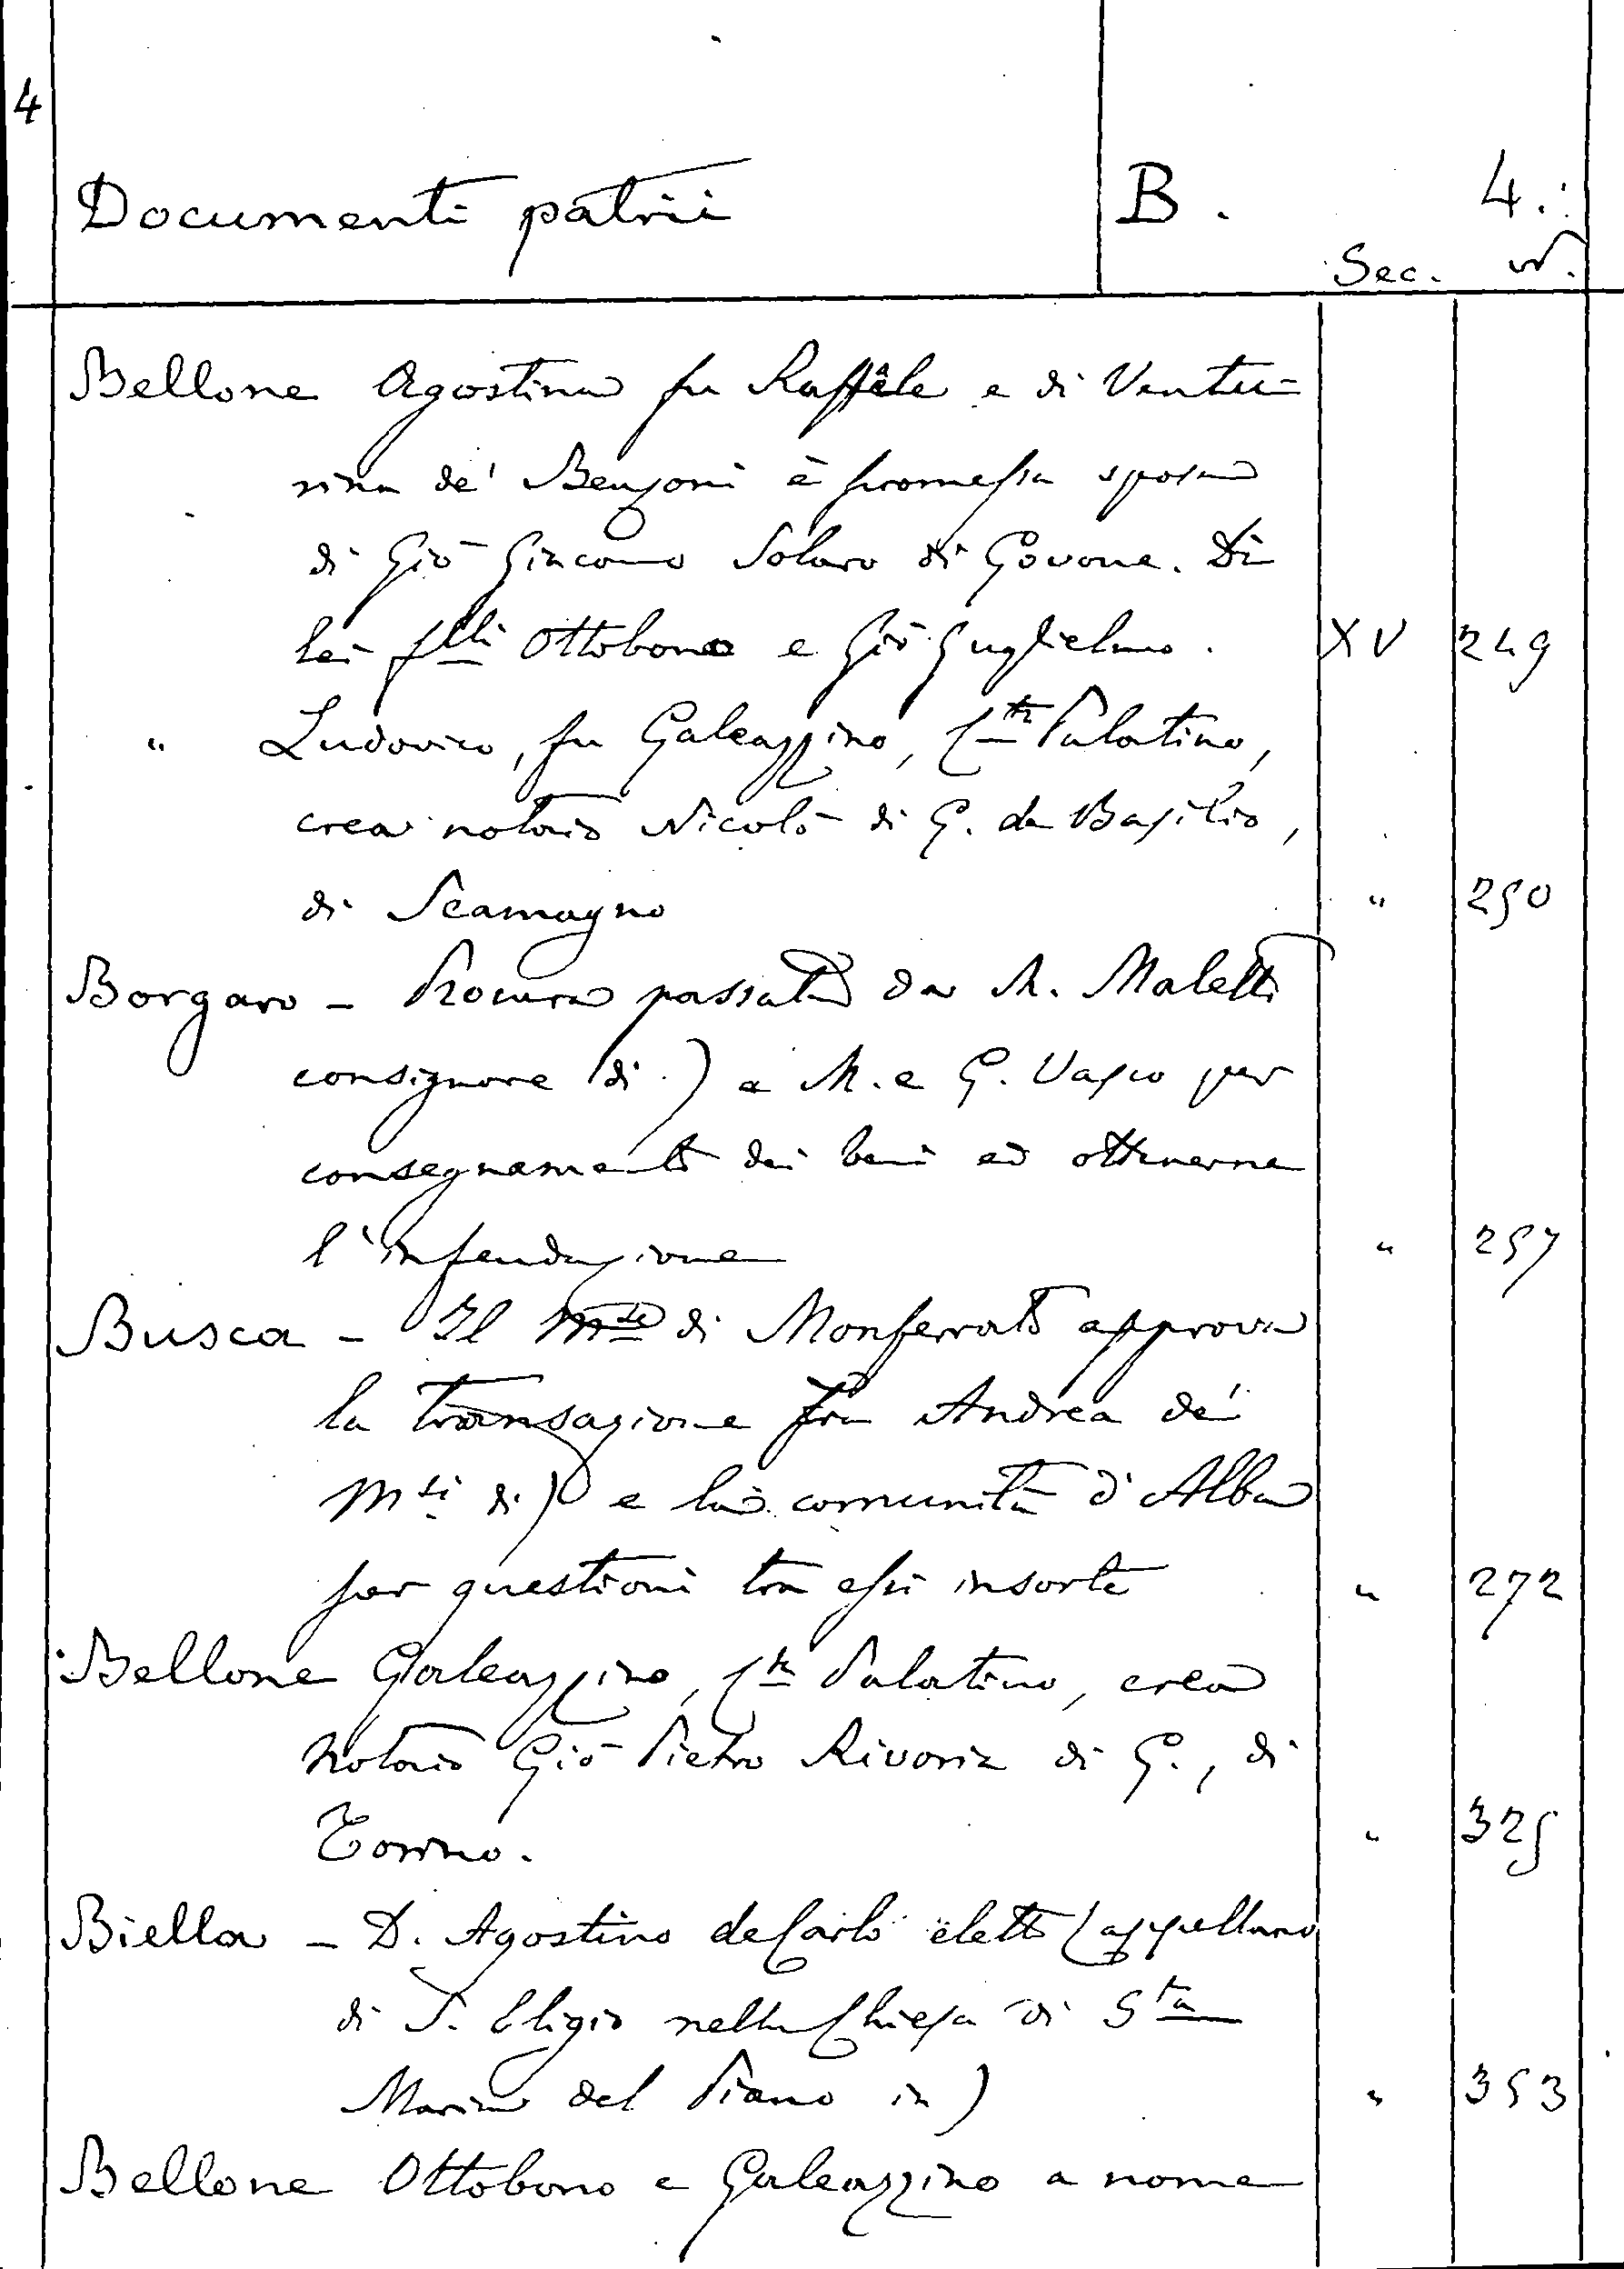 4
Documenti patrii B. 4.
Sec. N.
Bellone Agostina fu Raffaele e di Ventu=
rina de' Benzoni è promessa sposa
di Giò Giacomo Solaro di Govone. Di
lei flli Ottobono e Giò Guglielmo. XV 249
" Ludovico, fu Galeazzino, Cte Palatino,
crea notaio Nicolò di G. da Basilio,
di Scamagno " 250
Borgaro - Procura passata da M. Maletti
consignore di ) a M. e G. Vasco per
consegnamento dei beni ed ottenerne
l'infeudazione " 257
Busca - Il Mse di Monferrato approva
la transazione fra Andrea de'
Msi di ) e la comunità d'Alba
per questioni tra essi insorte " 272
Bellone Galeazzino, Cte Palatino, crea
notaio Giò Pietro Rivoria di G., di
Torino. " 325
Biella - D. Agostino de Carlo eletto Cappellano
di S. Eligio nella Chiesa di Sta
Maria del Piano in ) " 353
Bellone Ottobono e Galeazzino a nome